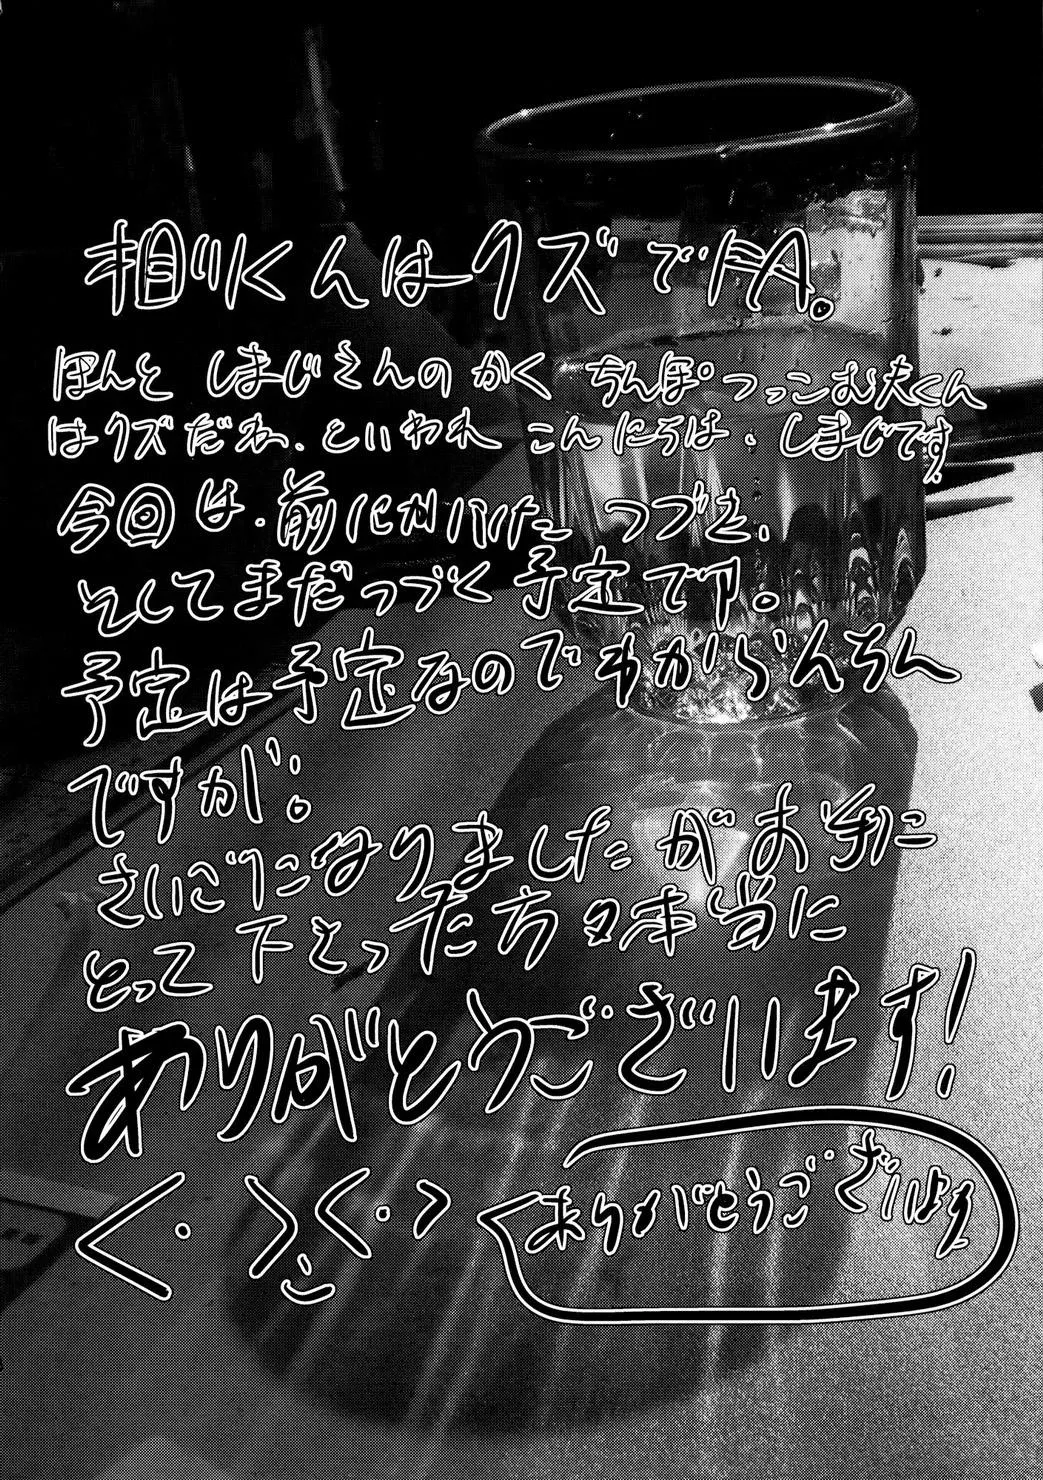 相川くんはクズでFA。
ほんと しまじさんのかく ちんぽつっこむ夫くん
はクズだね、といわれ こんにちは、しまじです。
今回は、前にかいた つづき、
そしてまだつづく予定です。
予定は予定なのでわからんちん
ですが。
さいごになりましたがお手に
とって下さった方々本当に
ありがとうございます!
<・><・>
ありがとうございます